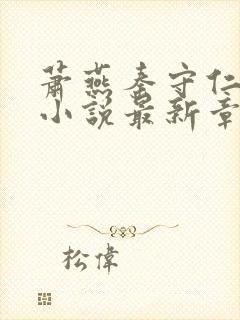 萧燕秦守仁
小说最新章
松偉